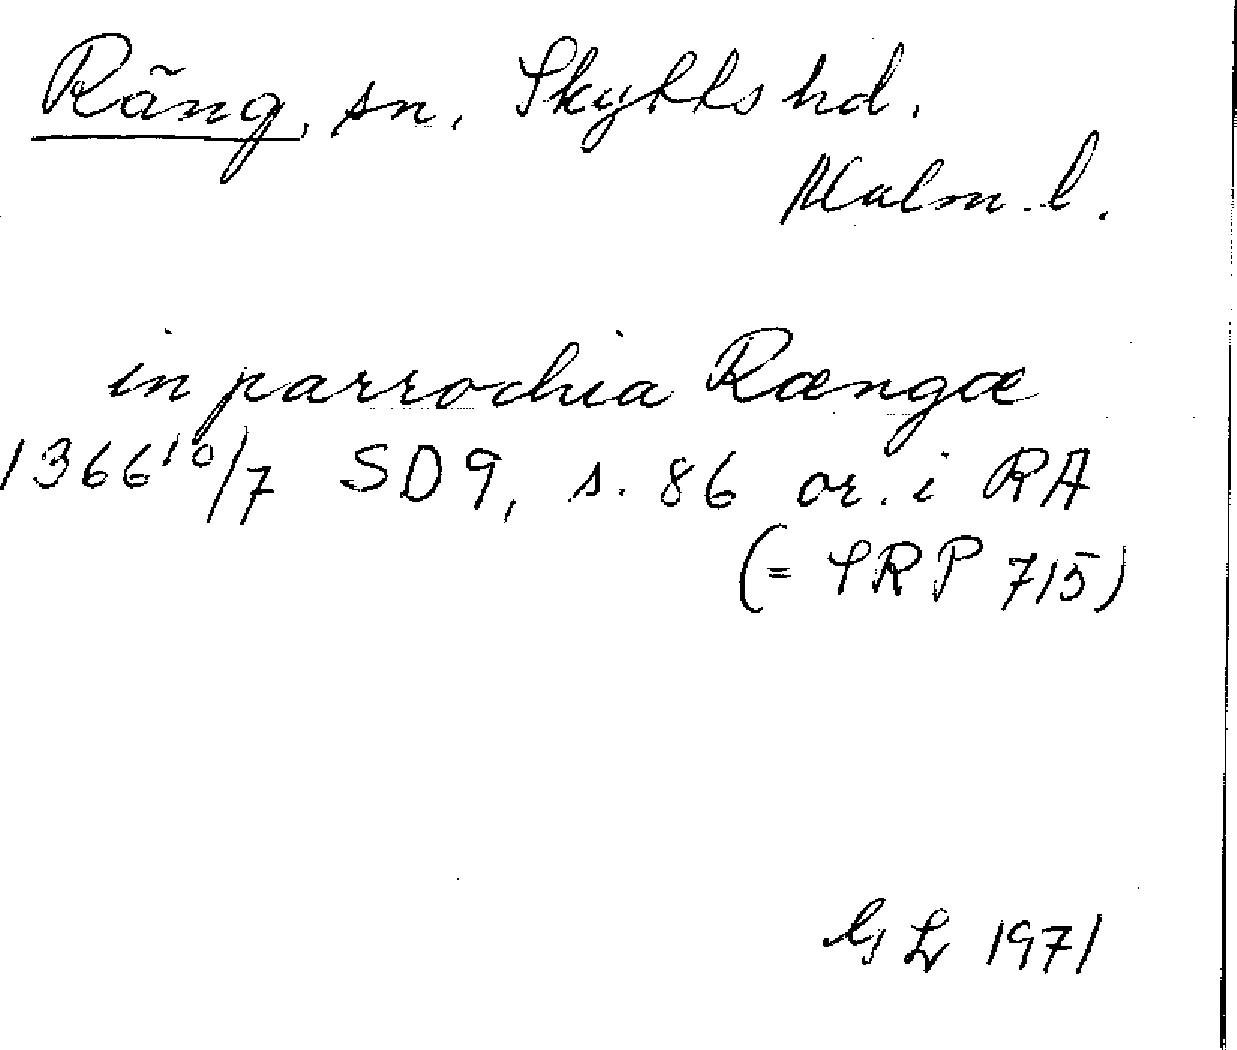 Räng, sn, Skytts hd.
Malm. l.
in parrochia Rængæ
1366 10/7 SD 9, s. 86 or. i RA
(= SRP 715)
GL 1971